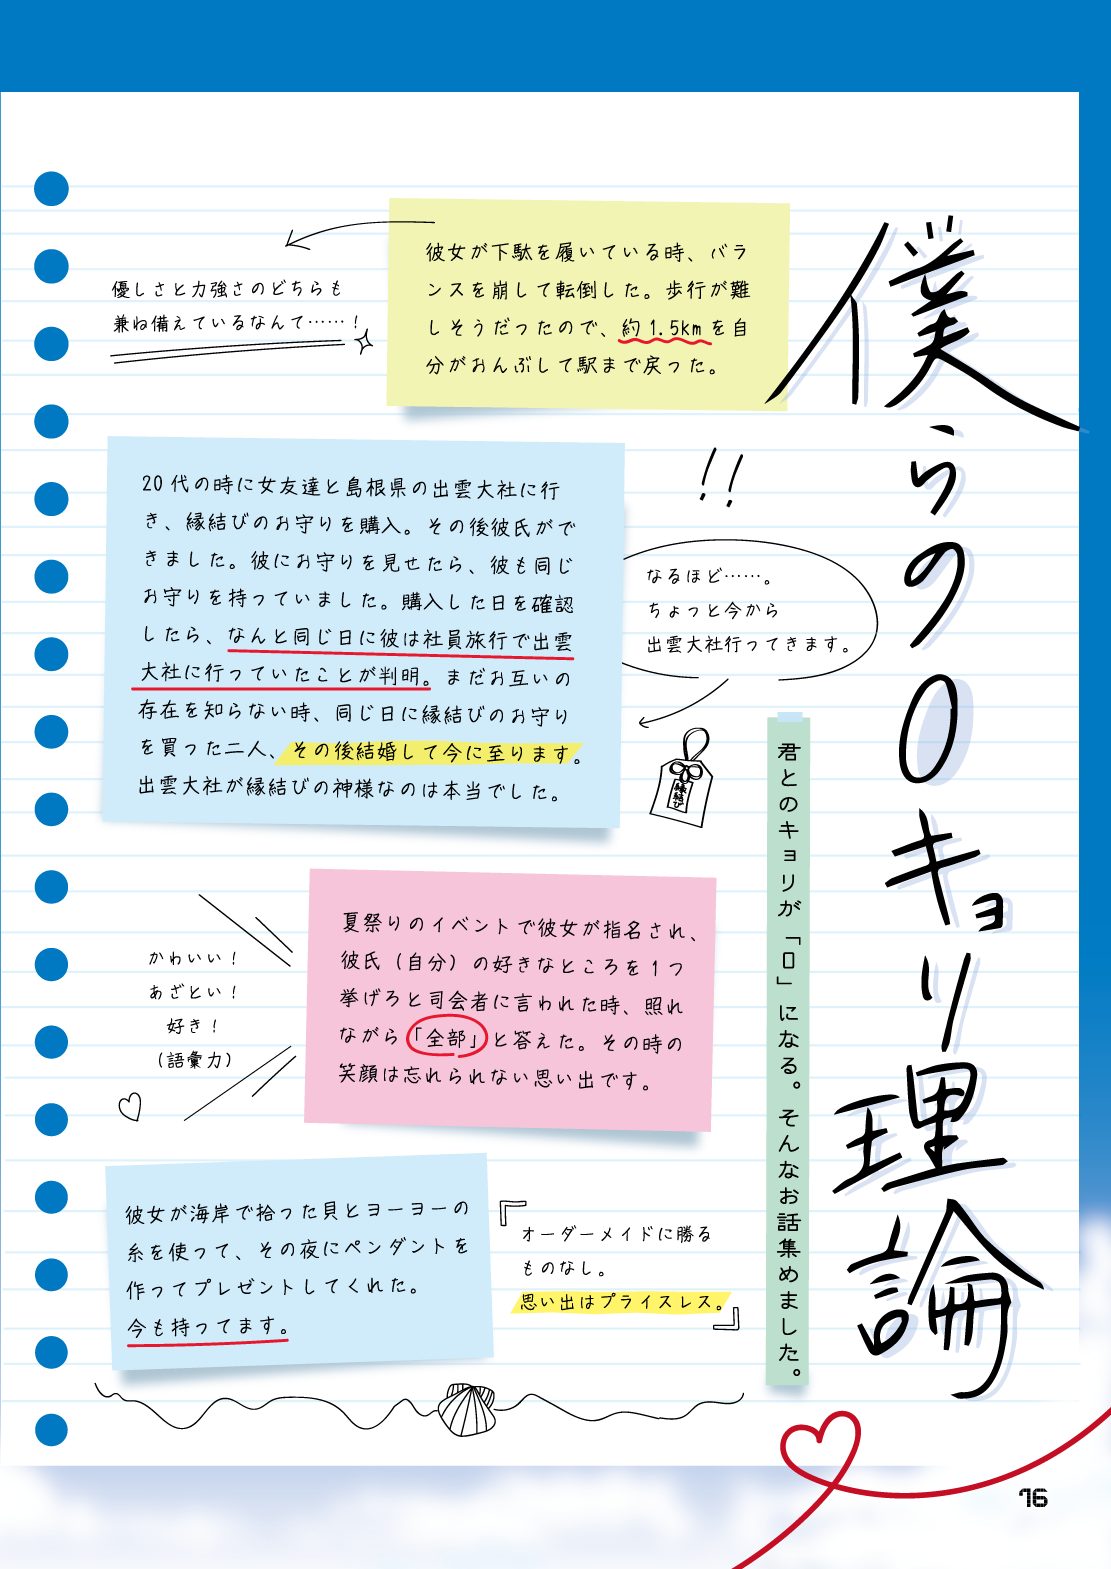 僕らの0キョリ理論
君とのキョリが「0」になる。そんなお話集めました。
彼女が下駄を履いている時、バラ
ンスを崩して転倒した。歩行が難
しそうだったので、約1.5kmを自
分がおんぶして駅まで戻った。
優しさと力強さのどちらも
兼ね備えているなんて……！
20代の時に女友達と島根県の出雲大社に行
き、縁結びのお守りを購入。その後彼氏がで
きました。彼にお守りを見せたら、彼も同じ
お守りを持っていました。購入した日を確認
したら、なんと同じ日に彼は社員旅行で出雲
大社に行っていたことが判明。まだお互いの
存在を知らない時、同じ日に縁結びのお守り
を買った二人、その後結婚して今に至ります。
出雲大社が縁結びの神様なのは本当でした。
!!
なるほど……。
ちょっと今から
出雲大社行ってきます。
縁結び
夏祭りのイベントで彼女が指名され、
彼氏（自分）の好きなところを1つ
挙げろと司会者に言われた時、照れ
ながら「全部」と答えた。その時の
笑顔は忘れられない思い出です。
かわいい！
あざとい！
好き！
（語彙力）
彼女が海岸で拾った貝とヨーヨーの
糸を使って、その夜にペンダントを
作ってプレゼントしてくれた。
今も持ってます。
『オーダーメイドに勝る
ものなし。
思い出はプライスレス。』
16